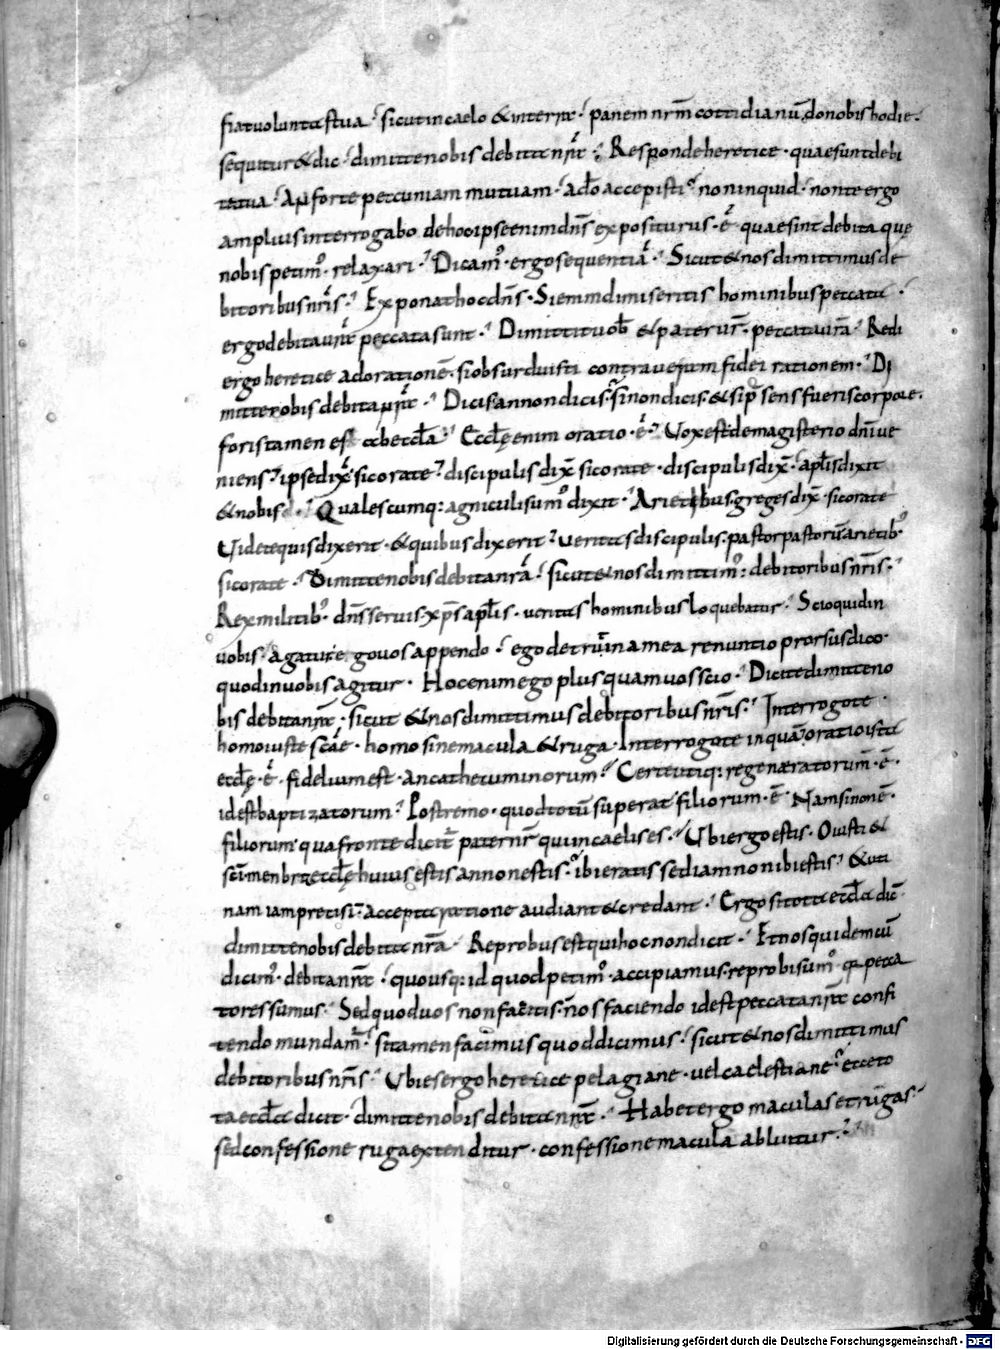 fiat voluntas tua sicut in caelo & in terra panem nrm cottidianu da nobis hodie
sequitur & dic dimitte nobis debita nra Responde heretice quae sunt debi
ta tua An forte pecuniam mutuam ado accepisti non inquid non te ergo
amplius interrogabo de hoc ipse enim dns expositurus e quae sint debita que
nobis petim relaxari Dicam ergo sequentia Sicut & nos dimittimus de
bitoribus nris Exponat hoc dns Si enim dimiseritis hominibus peccata
ergo debita peccata sunt Dimittit uob & pater ur peccata ura Redi
ergo heretice ad oratione si obsurduisti contra ueram fidei rationem Di
mitte nobis debita nra Dicis an non dicis si non dicis & si psens fueris corpore
foris tamen es ab eccla Eccle enim oratio e Vox est de magisterio dni ue
niens ipse dix sic orate discipulis dix sic orate discipulis dix aplis dixit
& nobis Qualescumq: agniculi sum dixit Arietibus gregis dix sic orate
Videte quis dixerit & quibus dixerit ueritas discipulis pastor pastoru arietib
sic orate Dimitte nobis debita nra sicut & nos dimittim: debitoribus nris
Rex militib dns seruis xps aplis ueritas hominibus loquebatur Scio quid in
uobis agatur ego uos appendo ego de trutina mea renuntio prorsus dico
quod in uobis agitur Hoc enim ego plus quam uos scio Dicite dimitte no
bis debita nra sicut & nos dimittimus debitoribus nris Interrogo te
homo iuste sce homo sine macula & ruga Interrogo te inqua oratio ista
eccle e fidelium est an cathecuminorum Certe utiq: regeneratorum e
id est baptizatorum Postremo quod totu superat filiorum e Nam si non e
filiorum qua fronte dicit pater nr qui in caelis es Vbi ergo estis Oues &
sci membra eccle huius estis an non estis ibi eratis sed iam non ibi estis & uti
nam iam precisi accepta ratione audiant & credant Ergo si tota eccla dic
dimitte nobis debita nra Reprobus est qui hoc non dicit Et nos quidem cu
dicim debita nra quousq: id quod petim accipiamus reprobi sum q pecca
tores sumus Sed quod uos non facitis nos faciendo id est peccata nra confi
tendo mundam si tamen facimus quod dicimus sicut & nos dimittimus
debitoribus nris Vbi es ergo heretice pelagiane uel caelestiane ecce to
ta eccla dicit dimitte nobis debita nra Habet ergo maculas et rugas
sed confessione ruga extenditur confessione macula abluitur
Digitalisierung gefördert durch die Deutsche Forschungsgemeinschaft - DFG